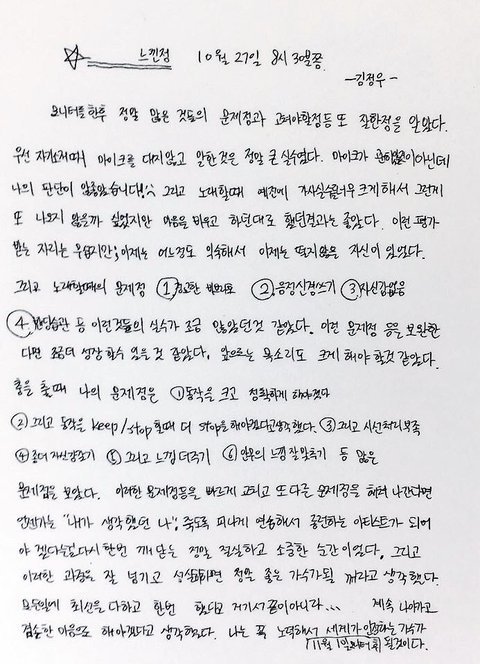 느낀점 10월 27일 8시 30분쯤
-김정우-
모니터를한후 정말 많은 것들의 문제점과 고쳐야할점등 또 잘한점을 알았다.
우선 자기소개때 마이크를 대지않고 말한것은 정말 큰 실수였다. 마이크가 아닌데
나의 판단이 않좋았습니다! 그리고 노래할때 예전에 자신감을너무 크게해서 그런지
또 나오지 않을까 싶었지만 마음을 비우고 하던대로 했던결과는 좋았다. 이런 평가
받는 자리는 이제는 어느정도 익숙해서 이제는 떨지않을 자신이 있었다.
그리고 노래할때의 문제점 ① ② 음정신경쓰기 ③ 자신감없음
④ 등 이런것들의 실수가 조금 있었던것 같았다. 이런 문제점 등을 보완한
다면 조금더 성장 할수 있을 것 같았다. 앞으로는 목소리도 크게 해야 할것 같았다.
춤을 출때 나의 문제점은 ① 동작을 크고 정확하게 해야겠다
② 그리고 동작을 keep/stop 할때 더 stop을해야겠다고생각했다. ③ 그리고 시선처리부족
④ 좀더 자신감갖기 ⑤ 그리고 느낌더주기 ⑥ 안무의 느낌 잘맞추기 등 많은
문제점을 보았다. 이러한 문제점들을 빠르게 고치고 또다른 문제점을 해쳐 나간다면
언젠가는 "내가 생각했던 나" 죽도록 피나게 연습해서 공연하는 아티스트가 되어
야 겠다는걸다시한번 깨닫는 정말 절실하고 소중한 순간이었다. 그리고
이러한 과정을 잘 넘기고 성실히하면 정말 좋은 가수가될 꺼라고 생각했다.
모든일에 최선을다하고 한번 했다고 저기서끝이아니라... 계속 나아가고
겸손한 마음으로 해야겠다고 생각했다. 나는 꼭 노력해서 세계가 인정하는 가수가
될것이다.